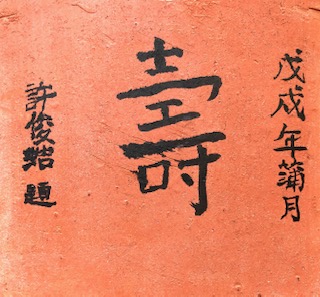 戊戌年蒲月
壽
許俊㛂題